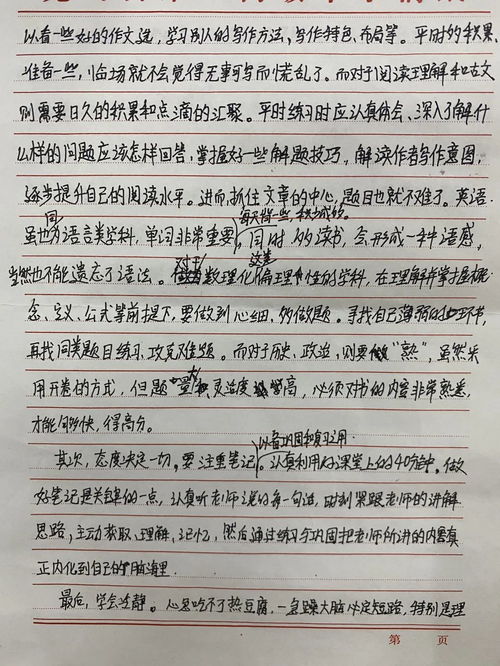 以看一些好的作文选，学习别人的写作方法、写作特色、布局等。平时的积累，
准备一些，临场就不会觉得无事可写而慌乱了。而对于阅读理解和古文
则需要日久的积累和点滴的汇聚。平时练习时应认真体会、深入了解什
么样的问题应该怎样回答，掌握好一些解题技巧，解读作者写作意图，
逐步提升自己的阅读水平。进而抓住文章的中心，题目也就不难了。英语
同 每天背一些，积少成多。
虽也为语言类学科，单词非常重要，同时多的读书，会形成一种语感，
对于 这类
当然也不能遗忘了语法。数理化偏理性的学科，在理解并掌握概
念、定义、公式等前提下，要做到心细、多做题。寻找自己薄弱的环节，
再找同类题目练习、攻克难题。而对于历史、政治，则要做“熟”，虽然采
用开卷的方式，但题量大、灵活度高，必须对书的内容非常熟悉，
才能够快，得高分。
以备巩固和复习之用。
其次，态度决定一切。要注重笔记，认真利用好课堂上的40分钟。做
好笔记是关键的一点，认真听老师说的每一句话，时刻紧跟老师的讲解
思路，主动获取、理解、记忆，然后通过练习与巩固把老师所讲的内容真
正内化到自己的脑海里。
最后，学会冷静。心急吃不了热豆腐，一急躁大脑必定短路，特别是理
第 页